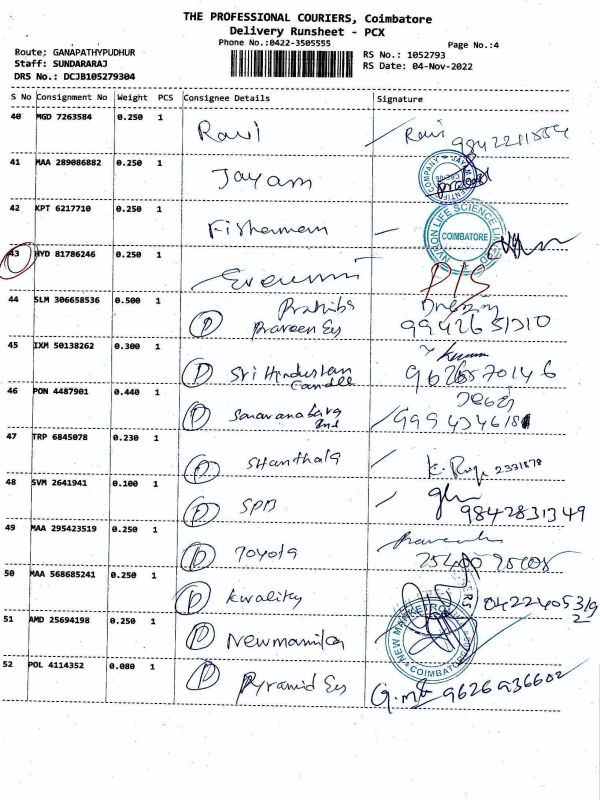 THE PROFESSIONAL COURIERS, Coimbatore
Delivery Runsheet - PCX
Phone No.:0422-3505555
Page No.:4
Route; GANAPATHYPUDHUR
Staff: SUNDARARAJ
DRS No.: DCJB105279304
RS No.: 1052793
RS Date: 04-Nov-2022
S No Consignment No Weight PCS Consignee Details Signature
40 MGD 7263584 0.250 1 Ravi Ravi
41 MAA 289086882 0.250 1 Jayam
42 KPT 6217710 0.250 1 Fisherman
ENVIRON LIFE SCIENCE
COIMBATORE
43 HYD 81786246 0.250 1
44 SLM 306658536 0.500 1 Prathiba
P Praveen Eng 9942651310
45 IXM 50138262 0.300 1 P Sri Hindustan
Candle 9626570146
46 PON 4487901 0.440 1 P
Ind
47 TRP 6845078 0.230 1 P Shanthala 2331878
48 SVM 2641941 0.100 1 P SPB 9842831349
49 MAA 295423519 0.250 1 P Toyota
50 MAA 568685241 0.250 1 P Kwality
51 AMD 25694198 0.250 1 P
NEW MARKETRO
COIMBATORE
52 POL 4114352 0.080 1 P Pyramid Eng 9626936602